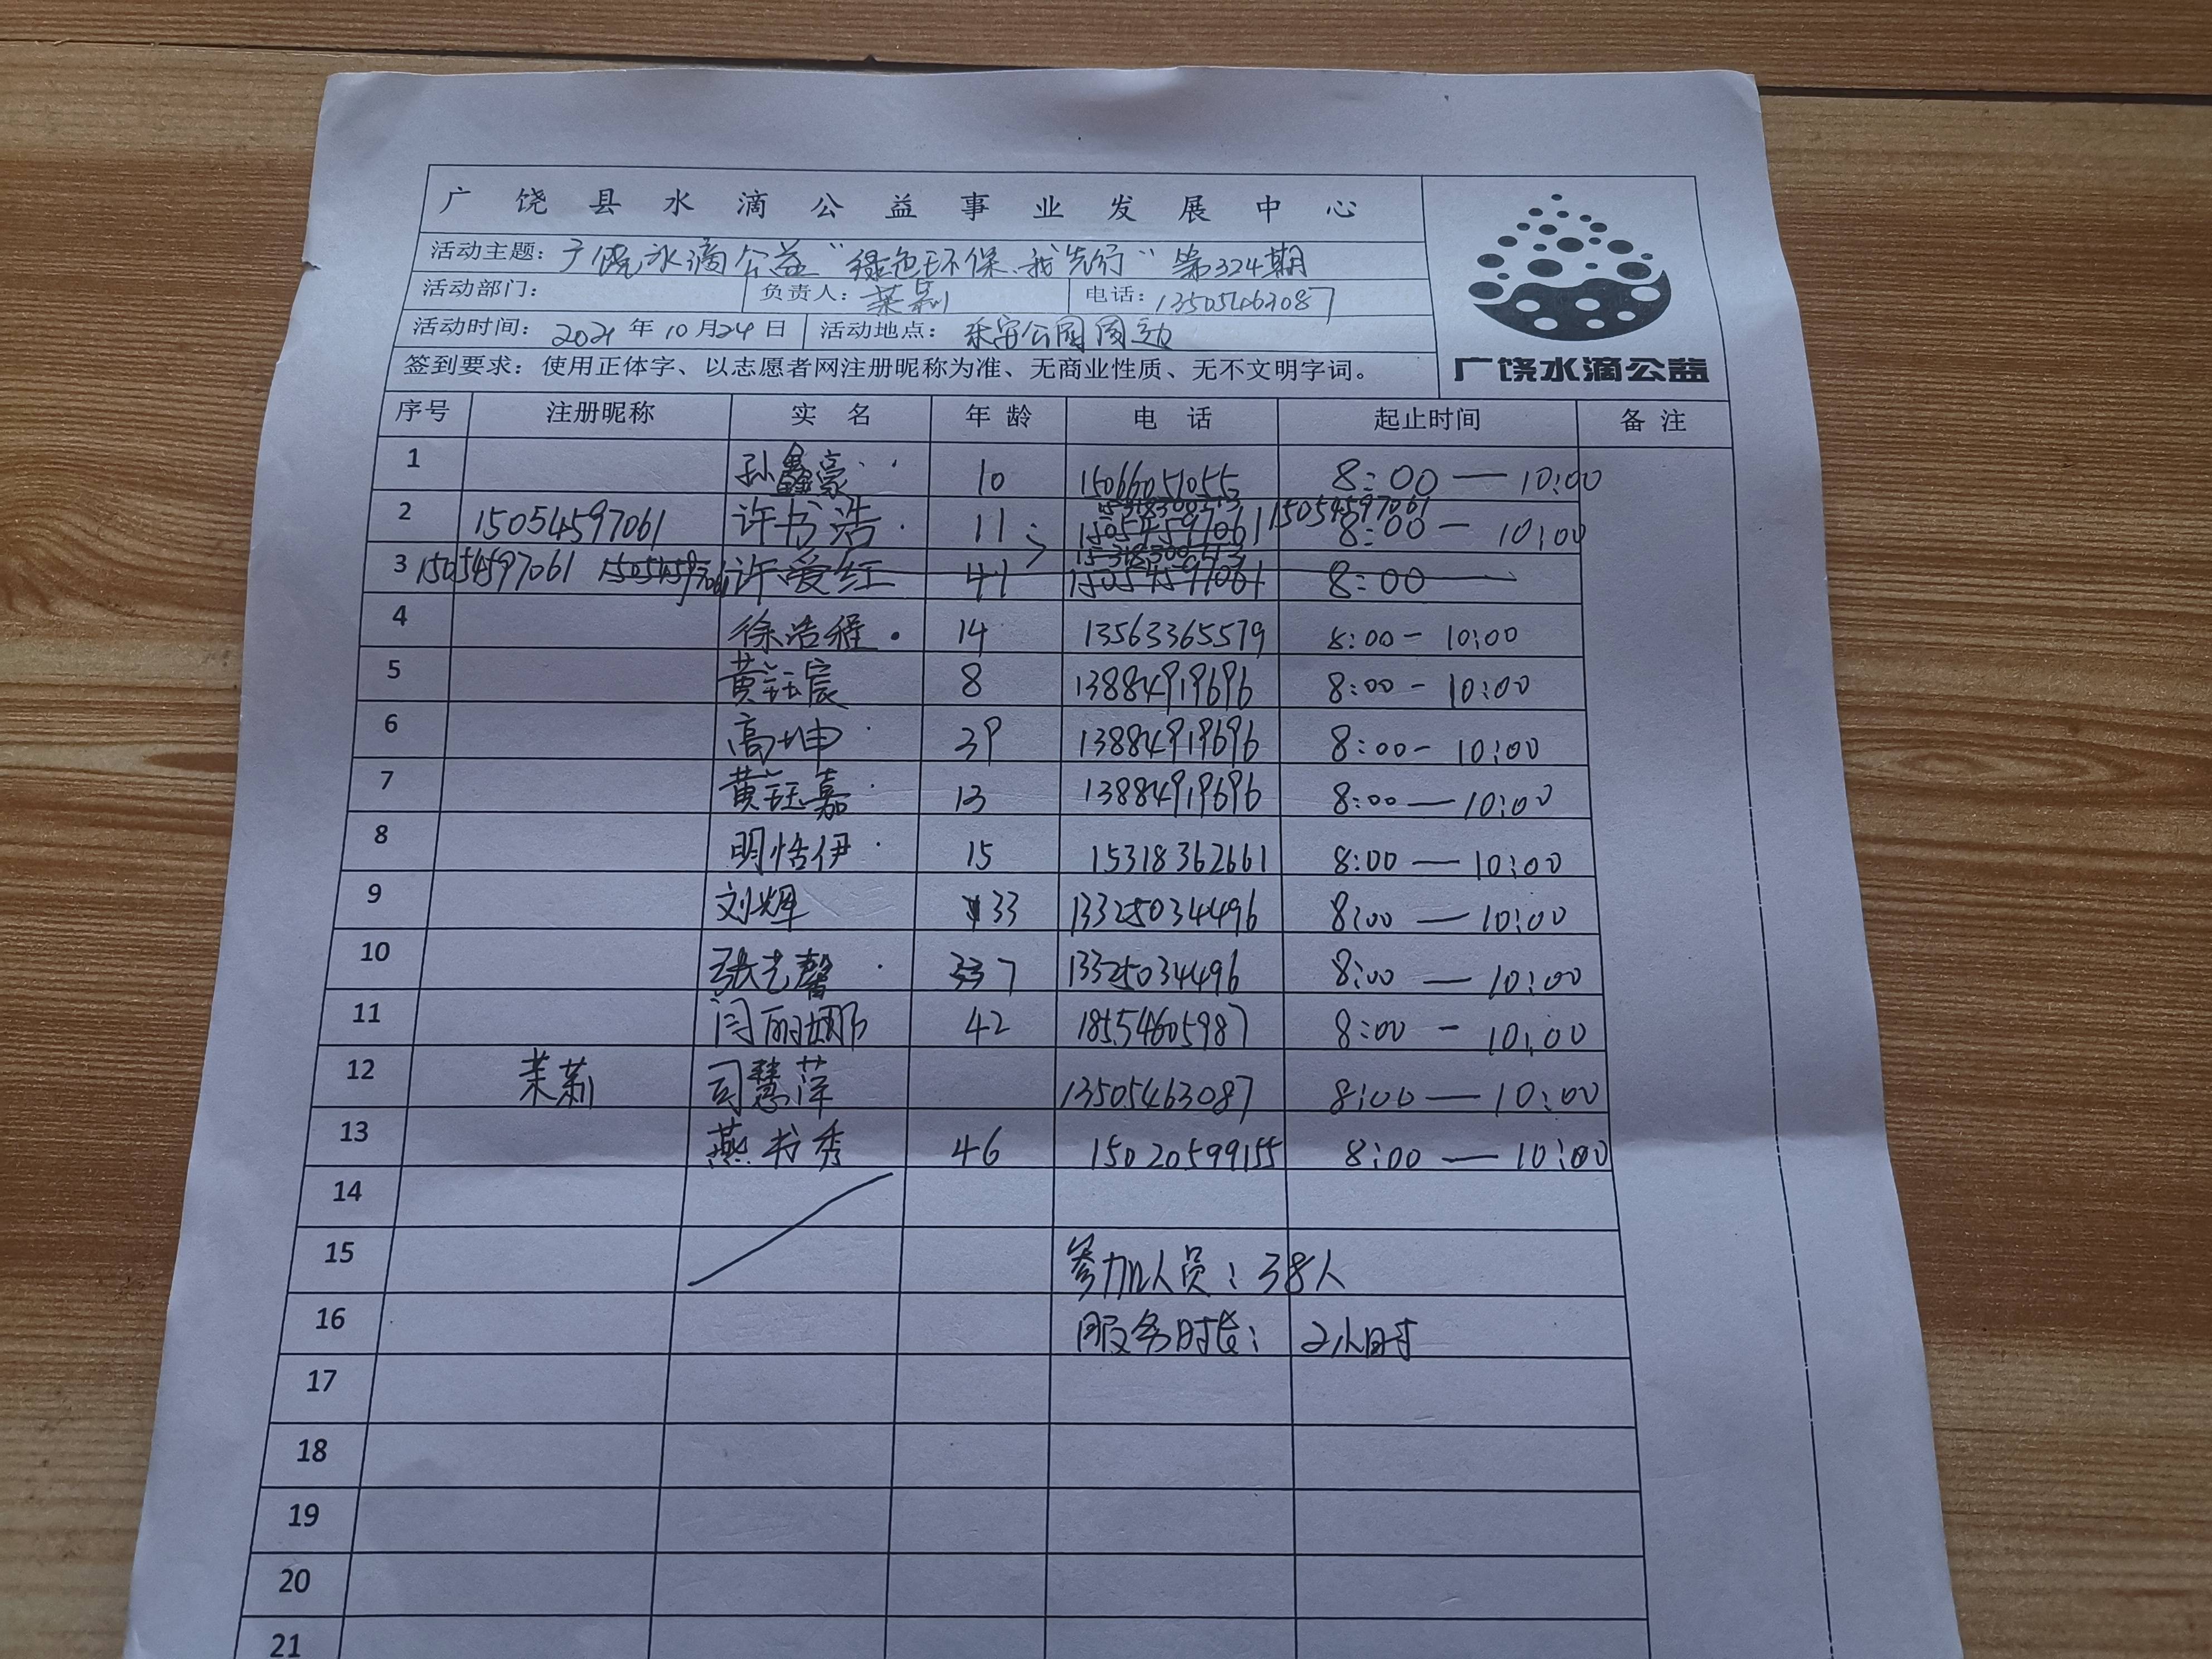 广饶县水滴公益事业发展中心
活动主题：广饶水滴公益"绿色环保、我先行"第324期
活动部门： 负责人：茉莉 电话：13505463087
活动时间：2021年10月24日 活动地点：乐安公园周边
签到要求：使用正体字、以志愿者网注册昵称为准、无商业性质、无不文明字词。
广饶水滴公益
序号 注册昵称 实名 年龄 电话 起止时间 备注
1 孙鑫豪 10 15066051055 8:00—10:00
2 15054597061 许书浩 11 15054597061 15054597061 8:00—10:00
3 15054597061 15054597061 许爱红 41 15054597061 8:00—
4 徐浩程 14 13563365579 8:00-10:00
5 黄钰宸 8 13884919696 8:00-10:00
6 高坤 39 13884919696 8:00-10:00
7 黄钰嘉 13 13884919696 8:00—10:00
8 明恬伊 15 15318362661 8:00—10:00
9 刘辉 33 13325034496 8:00—10:00
10 张艺馨 7 13325034496 8:00—10:00
11 闫丽娜 42 18554605987 8:00-10:00
12 茉莉 司慧萍 13505463087 8:00—10:00
13 燕书秀 46 15020599155 8:00—10:00
14
15 参加人员：38人
16 服务时长：2小时
17
18
19
20
21